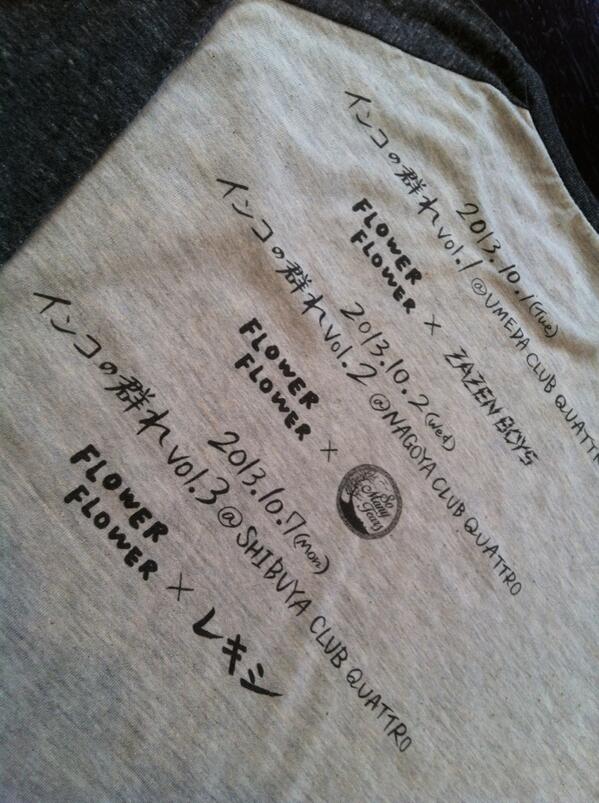 2013.10.1(Tue)
インコの群れ vol.1 @UMEDA CLUB QUATTR
FLOWER
FLOWER × ZAZEN BOYS
2013.10.2(Wed)
インコの群れ vol.2 @NAGOYA CLUB QUATTRO
FLOWER
FLOWER ×
So
Many
Tears
2013.10.7(Mon)
インコの群れ vol.3 @SHIBUYA CLUB QUATTRO
FLOWER
FLOWER × レキシ